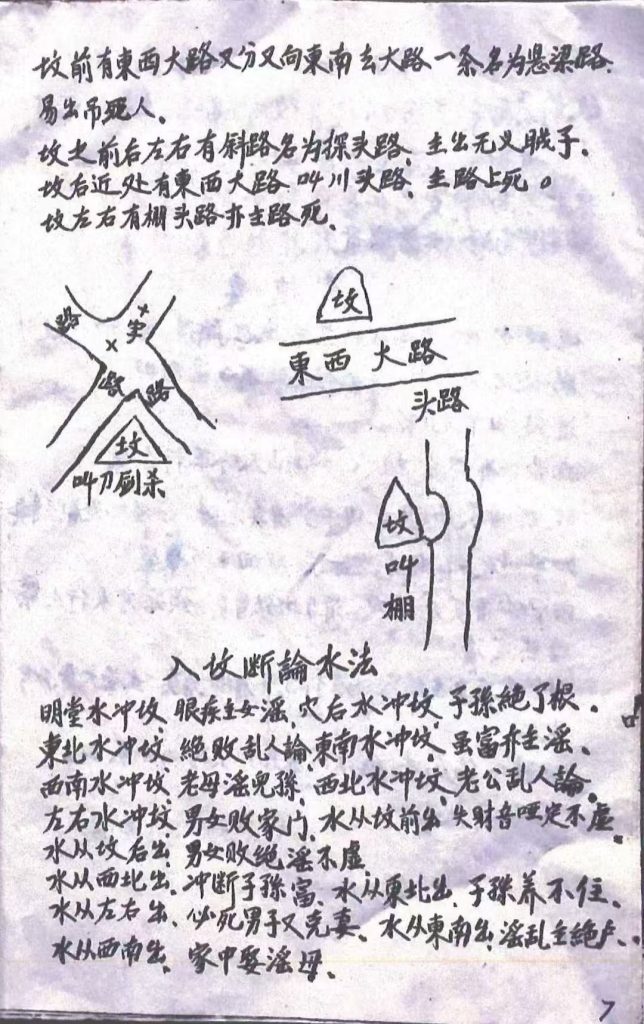 坟前有東西大路又分叉向東南去大路一条名为悬梁路.
易出吊死人.
坟之前后左右有斜路名为探头路.主出无义贼子.
坟后近处有東西大路叫川头路.主路上死。
坟左右有棚头路亦主路死.
路
路
路
坟
叫刀剑杀
坟
東西大路
头路
坟
叫
棚
入坟断論水法
明堂水冲坟.眼疾主女淫.穴后水冲坟.子孫絶了根.
東北水冲坟.絶败乱人論.東南水冲坟.虽富亦主淫.
西南水冲坟.老母淫兒孫.西北水冲坟.老公乱人論.
左右水冲坟男女败家门.水从坟前出失财音哑定不虚.
水从坟后出.男女败絶淫不虚.
水从西北出.冲断子孫富.水从東北出.子孫养不住.
水从左右出.必死男子又克妻.水从東南出.淫乱主絶户.
水从西南出.家中娶淫母.
7